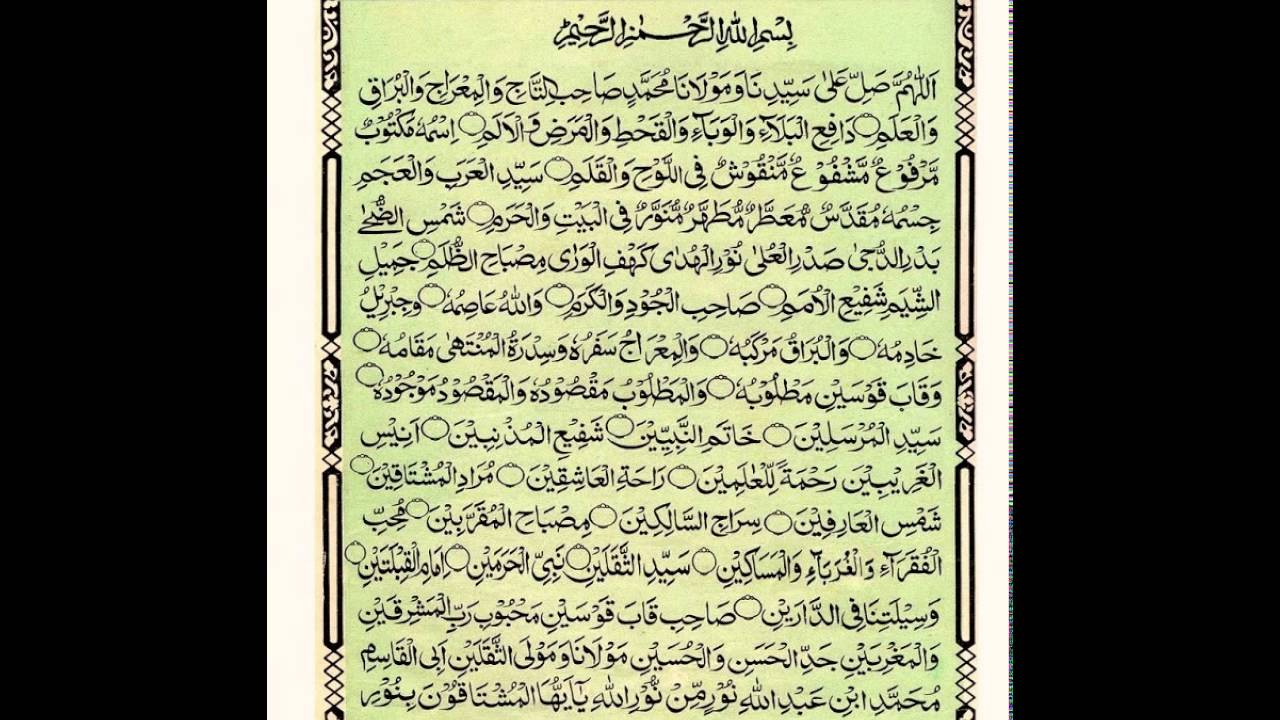 بِسْمِ اللهِ الرَّحْمٰنِ الرَّحِيْمِ
اَللّٰهُمَّ صَلِّ عَلٰى سَيِّدِنَا وَمَوْلَانَا مُحَمَّدٍ صَاحِبِ التَّاجِ وَالْمِعْرَاجِ وَالْبُرَاقِ
وَالْعَلَمِ ۝ دَافِعِ الْبَلَآءِ وَالْوَبَآءِ وَالْقَحْطِ وَالْمَرَضِ وَالْاَلَمِ ۝ اِسْمُهٗ مَكْتُوْبٌ
مَّرْفُوْعٌ مَّشْفُوْعٌ مَّنْقُوْشٌ فِى اللَّوْحِ وَالْقَلَمِ ۝ سَيِّدِ الْعَرَبِ وَالْعَجَمِ
جِسْمُهٗ مُقَدَّسٌ مُّعَطَّرٌ مُّطَهَّرٌ مُّنَوَّرٌ فِى الْبَيْتِ وَالْحَرَمِ ۝ شَمْسِ الضُّحٰى
بَدْرِ الدُّجٰى صَدْرِ الْعُلٰى نُوْرِ الْهُدٰى كَهْفِ الْوَرٰى مِصْبَاحِ الظُّلَمِ ۝ جَمِيْلِ
الشِّيَمِ شَفِيْعِ الْاُمَمِ ۝ صَاحِبِ الْجُوْدِ وَالْكَرَمِ ۝ وَاللهُ عَاصِمُهٗ ۝ وَجِبْرِيْلُ
خَادِمُهٗ ۝ وَالْبُرَاقُ مَرْكَبُهٗ ۝ وَالْمِعْرَاجُ سَفَرُهٗ وَسِدْرَةُ الْمُنْتَهٰى مَقَامُهٗ ۝
وَقَابَ قَوْسَيْنِ مَطْلُوْبُهٗ ۝ وَالْمَطْلُوْبُ مَقْصُوْدُهٗ وَالْمَقْصُوْدُ مَوْجُوْدُهٗ ۝
سَيِّدِ الْمُرْسَلِيْنَ ۝ خَاتَمِ النَّبِيِّيْنَ ۝ شَفِيْعِ الْمُذْنِبِيْنَ ۝ اَنِيْسِ
الْغَرِيْبِيْنَ رَحْمَةً لِّلْعٰلَمِيْنَ ۝ رَاحَةِ الْعَاشِقِيْنَ ۝ مُرَادِ الْمُشْتَاقِيْنَ ۝
شَمْسِ الْعَارِفِيْنَ ۝ سِرَاجِ السَّالِكِيْنَ ۝ مِصْبَاحِ الْمُقَرَّبِيْنَ ۝ مُحِبِّ
الْفُقَرَآءِ وَالْغُرَبَآءِ وَالْمَسَاكِيْنِ ۝ سَيِّدِ الثَّقَلَيْنِ ۝ نَبِيِّ الْحَرَمَيْنِ ۝ اِمَامِ الْقِبْلَتَيْنِ ۝
وَسِيْلَتِنَا فِى الدَّارَيْنِ ۝ صَاحِبِ قَابَ قَوْسَيْنِ مَحْبُوْبِ رَبِّ الْمَشْرِقَيْنِ
وَالْمَغْرِبَيْنِ جَدِّ الْحَسَنِ وَالْحُسَيْنِ مَوْلَانَا وَمَوْلَى الثَّقَلَيْنِ اَبِى الْقَاسِمِ
مُحَمَّدِ ابْنِ عَبْدِ اللهِ نُوْرٍ مِّنْ نُّوْرِ اللهِ يَآ اَيُّهَا الْمُشْتَاقُوْنَ بِنُوْرِ